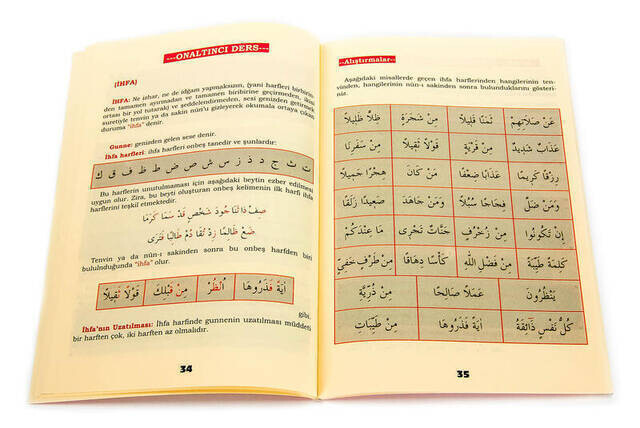 ---ONALTINCI DERS---
(İHFA)
İHFA: Ne izhar, ne de idğam yapmaksızın, (yani harfleri birbirinden tamamen ayırmadan ve tamamen biribirine geçirmeden, ikisi ortası bir yol tutarak) ve şeddelendirmeden, sesi genizden getirmek suretiyle tenvin ya da sakin nûn'u gizleyerek okumala ortaya çıkan duruma "ihfa" denir.
Gunne: genizden gelen sese denir.
İhfa harfleri: ihfa harfleri onbeş tanedir ve şunlardır:
ت ث ج د ذ ز س ش ص ض ط ظ ف ق ك
Bu harflerin unutulmaması için aşağıdaki beytin ezber edilmesi uygun olur. Zira, bu beyti oluşturan onbeş kelimenin ilk harfi ihfa harflerini teşkil etmektedir.
صِفْ ذَا ثَنَا جُودَ شَخْصٍ قَدْ سَمَا كَرَمَا
ضَعْ ظَالِمًا زِدْ تُقًا دُمْ طَالِبًا فَتَرَى
Tenvin ya da nûn-ı sakinden sonra bu onbeş harfden biri bulunduğunda "ihfa" olur.
اٰيَةً فَذَرُوهَا اُنْظُرْ مِنْ قَبْلِكَ قَوْلًا ثَقِيلًا
gibi.
İhfa'nın Uzatılması: İhfa harfinde gunnenin uzatılması müddeti bir harften çok, iki harften az olmalıdır.
34
--Alıştırmalar--
Aşağıdaki misallerde geçen ihfa harflerinden hangilerinin tenvinden, hangilerinin nûn-ı sakinden sonra bulunduklarını gösteriniz.
عَنْ صَلَاتِهِمْ ثَمَنًا قَلِيلًا مِنْ شَجَرَةٍ ظِلًّا ظَلِيلًا
عَذَابٌ شَدِيدٌ مِنْ قَرْيَةٍ قَوْلًا ثَقِيلًا مِنْ سَفَرِنَا
رِزْقًا كَرِيمًا عَذَابًا ضِعْفًا مَنْ كَانَ هَجْرًا جَمِيلًا
وَمَنْ ضَلَّ فِجَاجًا سُبُلًا وَمَنْ جَاهَدَ صَعِيدًا زَلَقًا
اِنْ تَكُونُوا مِنْ زُخْرُفٍ جَنَّاتٌ تَجْرِى مَا عِنْدَكُمْ
كَلِمَةً طَيِّبَةً مِنْ فَضْلِ اللّٰهِ كَأْسًا دِهَاقًا مِنْ طَرْفٍ خَفِىٍّ
يَنْظُرُونَ عَمَلًا صَالِحًا مِنْ ذُرِّيَّةِ
كُلُّ نَفْسٍ ذَائِقَةُ اٰيَةً فَذَرُوهَا مِنْ طَيِّبَاتِ
35